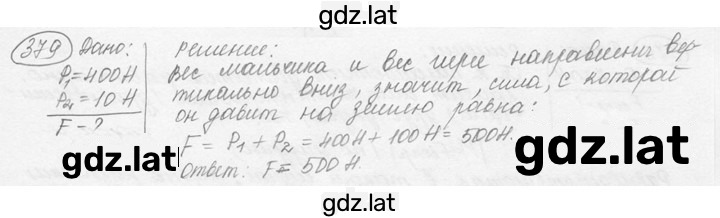 gdz.lat
379 Дано: Решение:
P₁=400Н Вес мальчика и вес гири направлены вер-
P₂=10 Н тикально вниз, значит, сила, с которой
F - ? он давит на землю равна:
F = P₁ + P₂ = 400Н + 100Н = 500Н.
Ответ: F = 500 Н.
gdz.lat
gdz.lat
gdz.lat